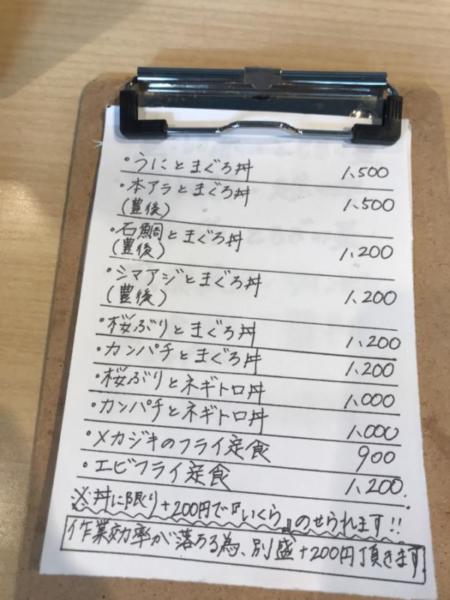 ・うにとまぐろ丼 1,500
・本アラとまぐろ丼 1,500
(豊後)
・石鯛とまぐろ丼 1,200
(豊後)
・シマアジとまぐろ丼 1,200
(豊後)
・桜ぶりとまぐろ丼 1,200
・カンパチとまぐろ丼 1,200
・桜ぶりとネギトロ丼 1,000
・カンパチとネギトロ丼 1,000
・メカジキのフライ定食 900
・エビフライ定食 1,200.
※丼に限り+200円で『いくら』のせられます!!
作業効率が落ちる為、別盛+200円頂きます